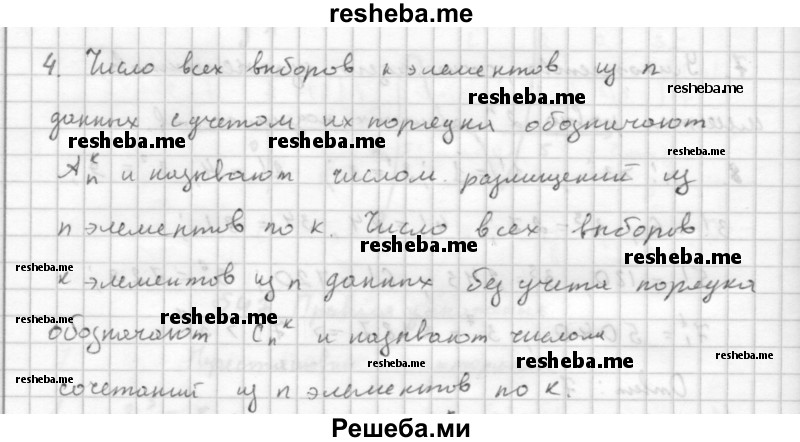 resheba.me
4. Число всех выборов k элементов из n
resheba.me
данных с учетом их порядка обозначают
resheba.me resheba.me
resheba.me
Aₙᵏ и называют числом размещений из
n элементов по k. Число всех выборов
resheba.me
resheba.me
k элементов из n данных без учета порядка
resheba.me
обозначают Cₙᵏ и называют числом
resheba.me resheba.me
resheba.me
сочетаний из n элементов по k.
Решеба.ми